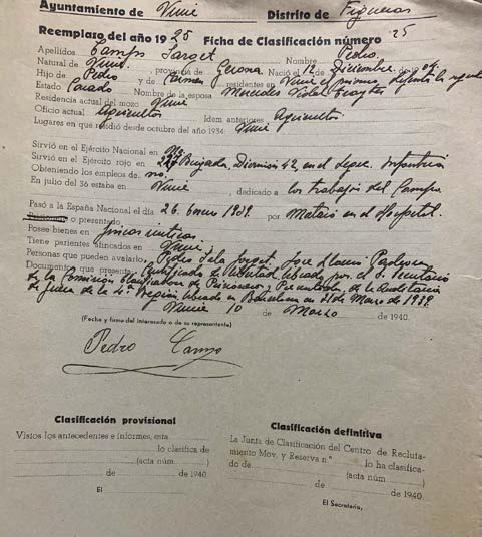 Ayuntamiento de Distrito de Figueras
Reemplazo del año 1925 Ficha de Clasificación número 25
Apellidos Camps Sarget Nombre Pedro.
Natural de provincia de Gerona. Nació el 12 de Diciembre de 1904.
Hijo de Pedro y de Carmen residentes en
Estado Casado Nombre de la esposa Mercedes Vidal
Residencia actual del mozo
Oficio actual Agricultor Idem anteriores Agricultor
Lugares en que residió desde octubre del año 1934:
Sirvió en el Ejército Nacional en No.
Sirvió en el Ejército rojo en 227 Brigada, Division 42, en el Infanteria
Obteniendo los empleos de no.
En julio del 36 estaba en dedicado a los trabajos del Campo
Pasó a la España Nacional el día 26 Enero 1939. por Mataró en el Hospital.
o presentado
Posee bienes en fincas rusticas
Tiene parientes afincados en
Personas que puedan avalarlo: Pedro Jose
Documentos que presenta Certificado de librado por el S. Secretario
de la Comisión Clasificadora de Prisioneros y Presentados, de la Auditoria
de Guerra de la 4ª Región, librado en Barcelona en 31 de Marzo de 1939.
10 de Marzo de 1940.
(Fecha y firma del interesado o de su representante)
Pedro Camps
Clasificación provisional
Vistos los antecedentes e informes, esta
lo clasifica de
(acta núm. )
de de 1940
El
Clasificación definitiva
La Junta de Clasificación del Centro de Recluta-
miento Mov. y Reserva n.º lo ha clasifica-
do de (acta núm. )
de de 1940.
El Secretario,